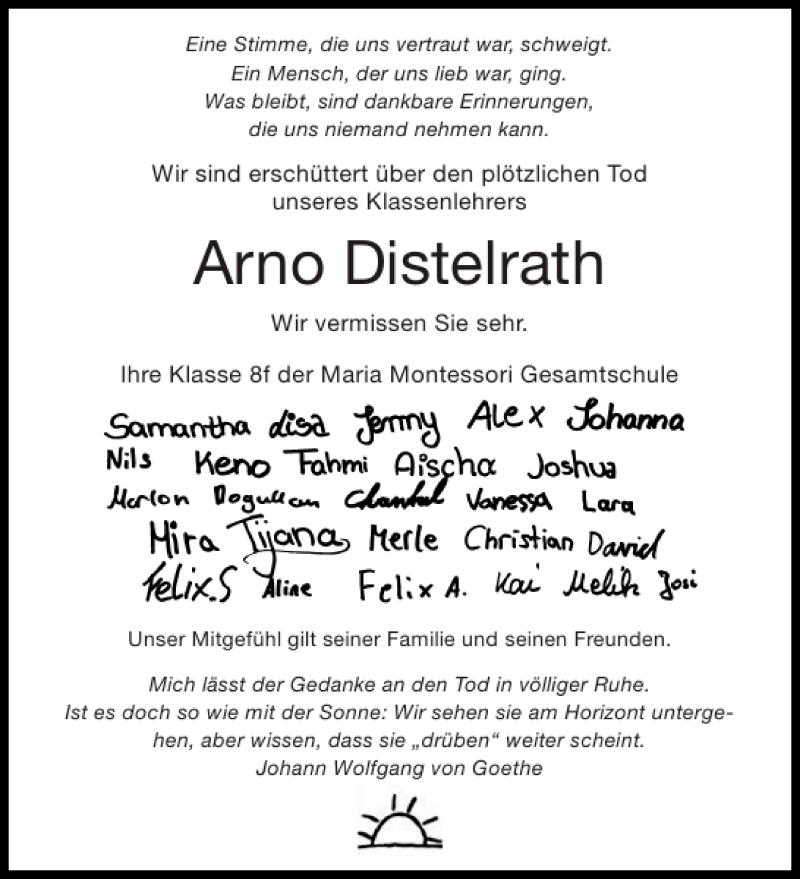 Eine Stimme, die uns vertraut war, schweigt.
Ein Mensch, der uns lieb war, ging.
Was bleibt, sind dankbare Erinnerungen,
die uns niemand nehmen kann.
Wir sind erschüttert über den plötzlichen Tod
unseres Klassenlehrers
Arno Distelrath
Wir vermissen Sie sehr.
Ihre Klasse 8f der Maria Montessori Gesamtschule
Samantha Lisa Jenny Alex Johanna
Nils Keno Fahmi Aischa Joshua
Marlon Chantal Vanessa Lara
Mira Tijana Merle Christian David
Felix.S Aline Felix A. Kai Melih Josi
Unser Mitgefühl gilt seiner Familie und seinen Freunden.
Mich lässt der Gedanke an den Tod in völliger Ruhe.
Ist es doch so wie mit der Sonne: Wir sehen sie am Horizont unterge-
hen, aber wissen, dass sie „drüben“ weiter scheint.
Johann Wolfgang von Goethe